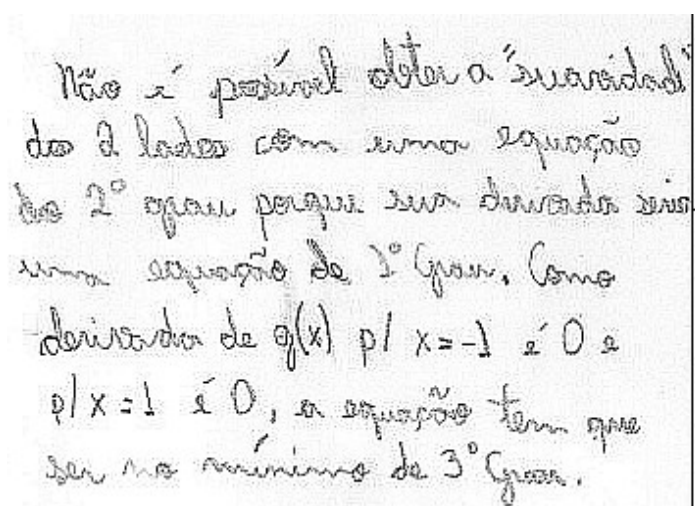 Não é possível obter a "suavidade"
dos 2 lados com uma equação
do 2° grau porque sua derivada seria
uma equação de 1° Grau. Como
derivada de g(x) p/ x = -1 é 0 e
p/ x = 1 é 0, a equação tem que
ser no mínimo de 3° Grau.